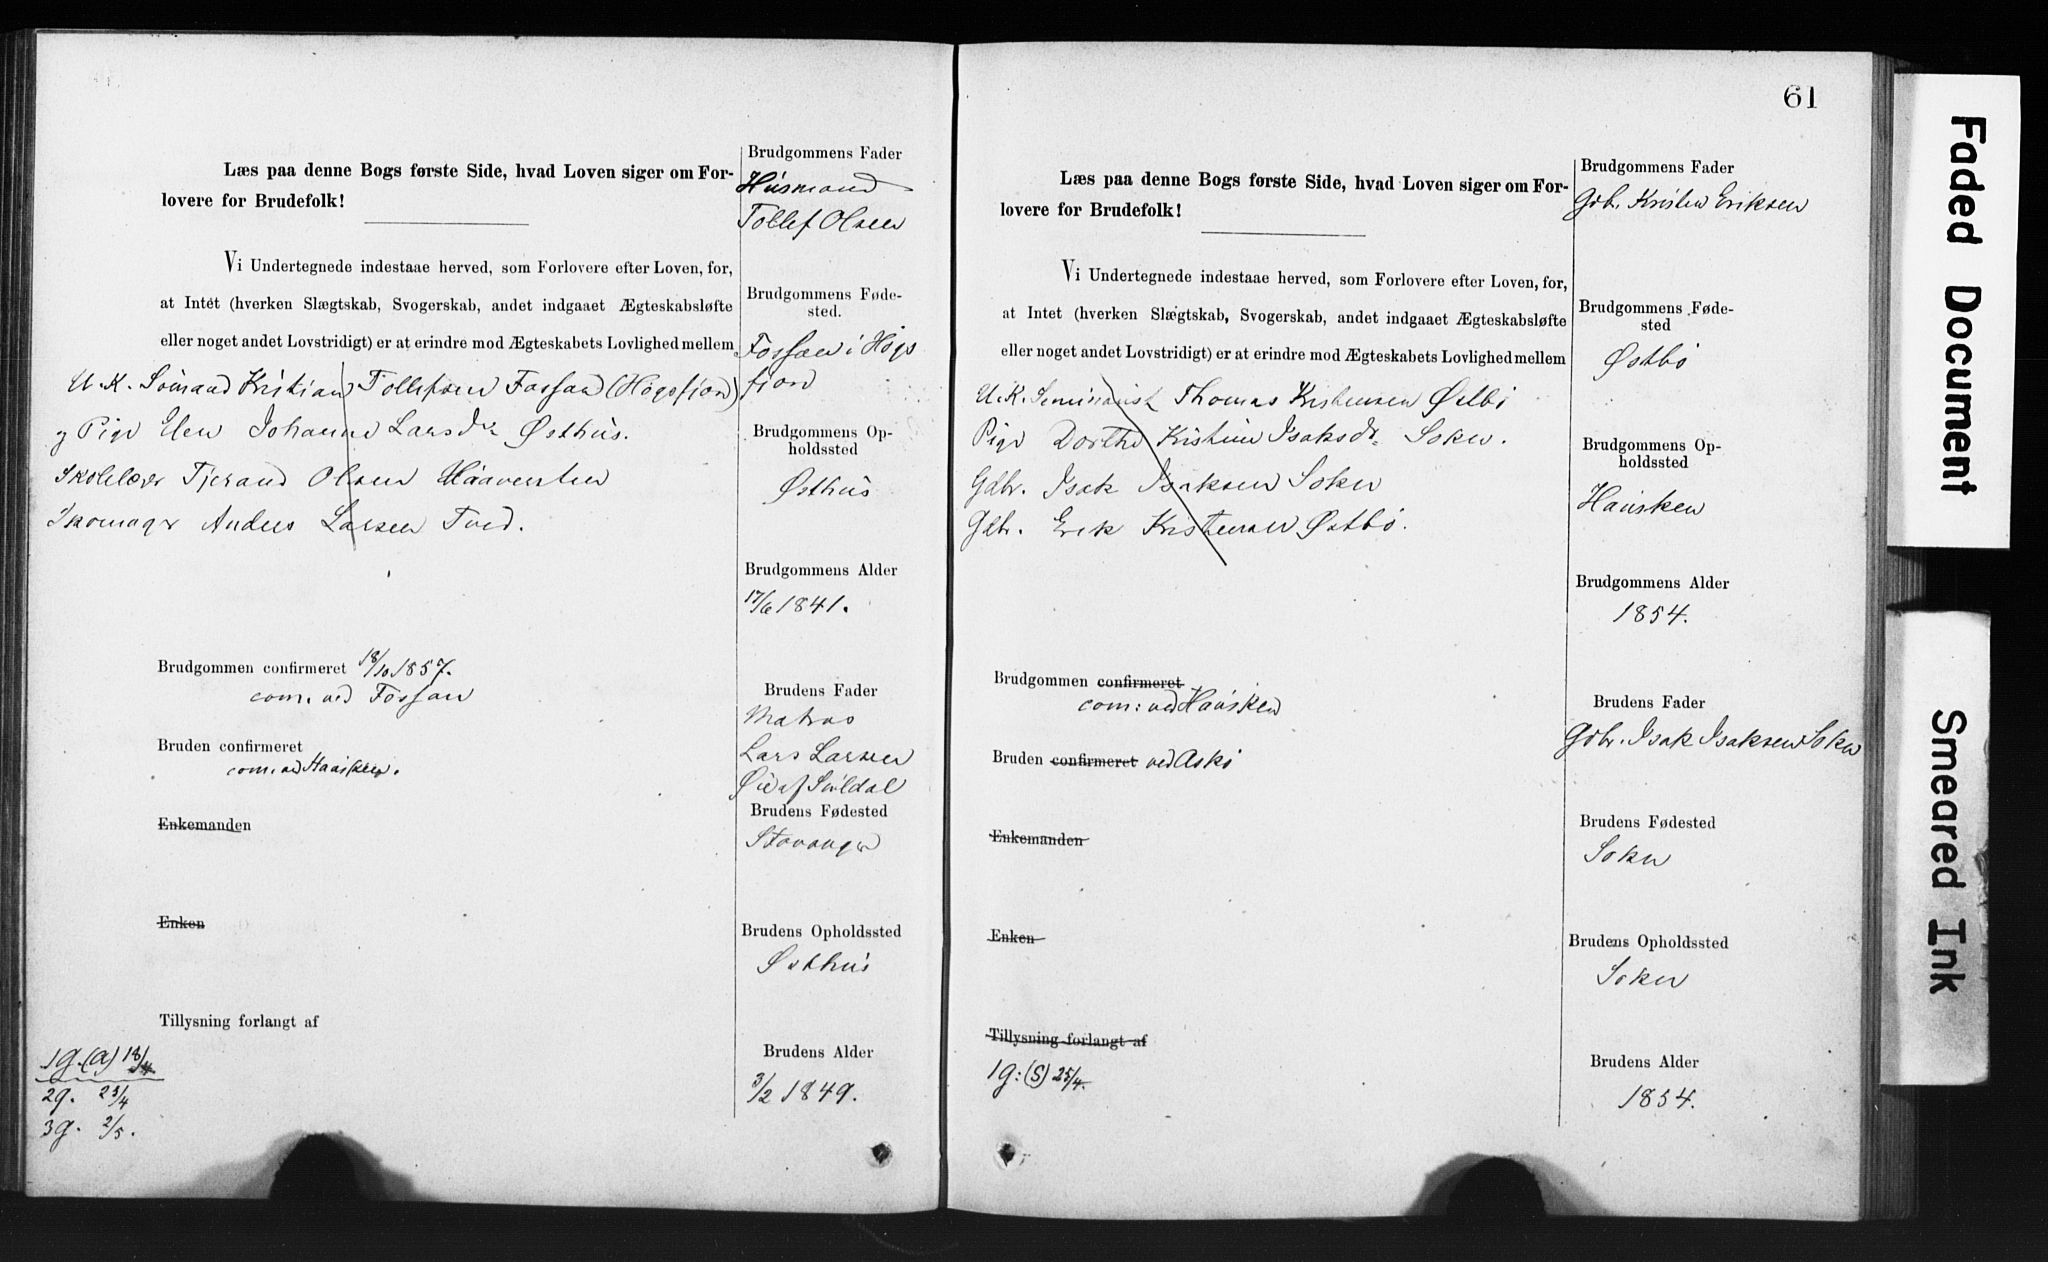 Læs paa denne Bogs første Side, hvad Loven siger om For-
lovere for Brudefolk!
Vi Undertegnede indestaae herved, som Forlovere efter Loven, for,
at Intet (hverken Slægtskab, Svogerskab, andet indgaaet Ægteskabsløfte
eller noget andet Lovstridigt) er at erindre mod Ægteskabets Lovlighed mellem
U. K. Sömand Kristian Tollefsen Fossan (Högsfjord)
og Pige Elen Johanne Larsdr Østhus.
Skolelærer Tjerand Olsen
Skomager Anders Larsen Tved.
Brudgommen confirmeret 18/10 1857.
com. ved Fossan
Bruden confirmeret
com. ved Hausken.
Enkemanden
Enken
Tillysning forlangt af
1g. (a) 18/4
2g. 23/4
3g. 2/5.
Brudgommens Fader
Husmand
Tollef Olsen
Brudgommens Føde-
sted.
Fossan i Høgs
fjord
Brudgommens Op-
holdssted
Østhus
Brudgommens Alder
17/6 1841.
Brudens Fader
Matros
Lars Larsen
Øie af Suldal
Brudens Fødested
Stavanger
Brudens Opholdssted
Østhus
Brudens Alder
3/2 1849.
61
Læs paa denne Bogs første Side, hvad Loven siger om For-
lovere for Brudefolk!
Vi Undertegnede indestaae herved, som Forlovere efter Loven, for,
at Intet (hverken Slægtskab, Svogerskab, andet indgaaet Ægteskabsløfte
eller noget andet Lovstridigt) er at erindre mod Ægteskabets Lovlighed mellem
U. K. Seminarist Thomas Kristensen Østbö
Pige Dorthe Kristine Isaksdr Soken.
Gdbr. Isak Isaksen Soken
Gdbr. Erik Kristensen Østbö.
Brudgommen confirmeret
com: ved Hausken
Bruden confirmeret ved Askö
Enkemanden
Enken
Tillysning forlangt af
1g: (S) 25/4.
Brudgommens Fader
Gdbr. Kristen Eriksen
Brudgommens Føde-
sted
Østbö
Brudgommens Op-
holdssted
Hausken
Brudgommens Alder
1854.
Brudens Fader
Gdbr. Isak Isaksen Soken
Brudens Fødested
Soken
Brudens Opholdssted
Soken
Brudens Alder
1854.
Faded Document
Smeared Ink